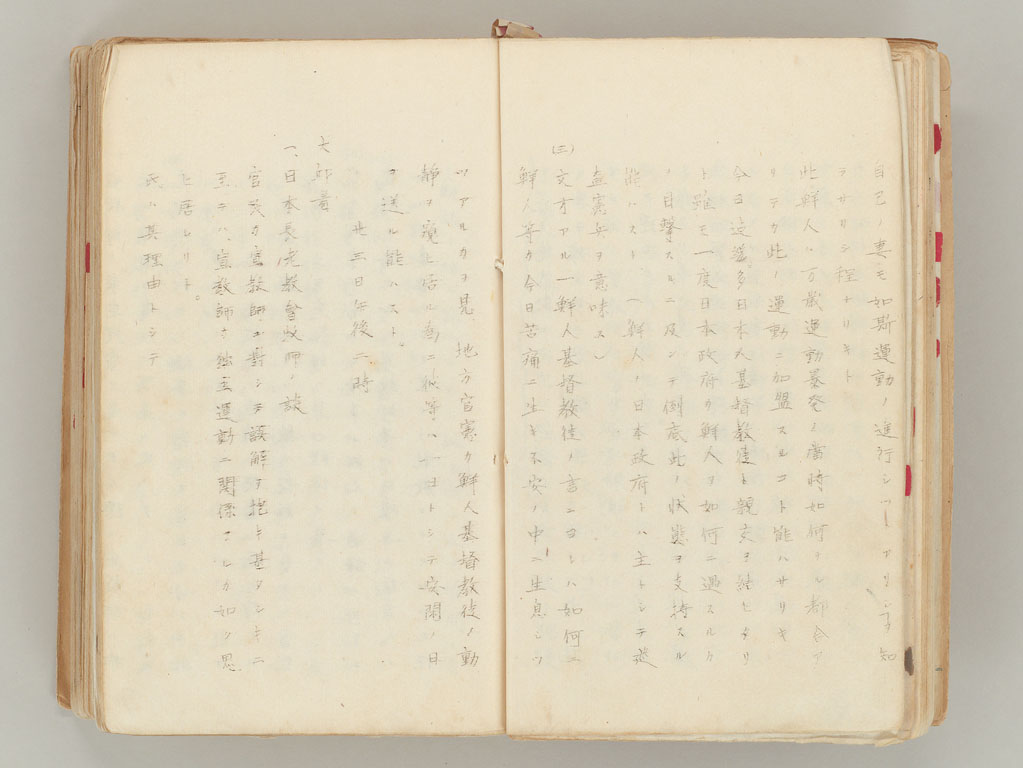 自己ノ妻モ如斯運動ノ進行シツヽアリシヲ知
ラサリシ程ナリキト
此鮮人ハ万歳運動暴発ノ当時如何ナル都合ア
リテカ此ノ運動ニ加盟スルコト能ハサリキ
今日迄数多日本人基督教徒ト親交ヲ結ヒタリ
ト雖モ一度日本政府カ鮮人ヲ如何ニ遇スルカ
ノ目撃スルニ及ンテ倒底此ノ状態ヲ支持スル
能ハスト(鮮人ノ日本政府トハ主トシテ巡
査憲兵ヲ意味ス)
(三)文才アル一鮮人基督教徒ノ言ニヨレハ如何ニ
鮮人等カ今日苦痛ニ生キ不安ノ中ニ生息シツ
ツアルカヲ見地方官憲カ鮮人基督教徒ノ動
静ヲ窺ヒ居ル為ニ彼等ハ一日トシテ安閑ノ日
ヲ送ル能ハスト。
廿三日午後二時
七、
一、日本長老教會牧師ノ談
官憲カ宣教師ニ対シテ誤解ヲ抱キ甚タシキニ
至テハ、宣教師モ独立運動ニ関係アルカ如ク思
ヒ居レリト。
氏ハ其理由トシテ